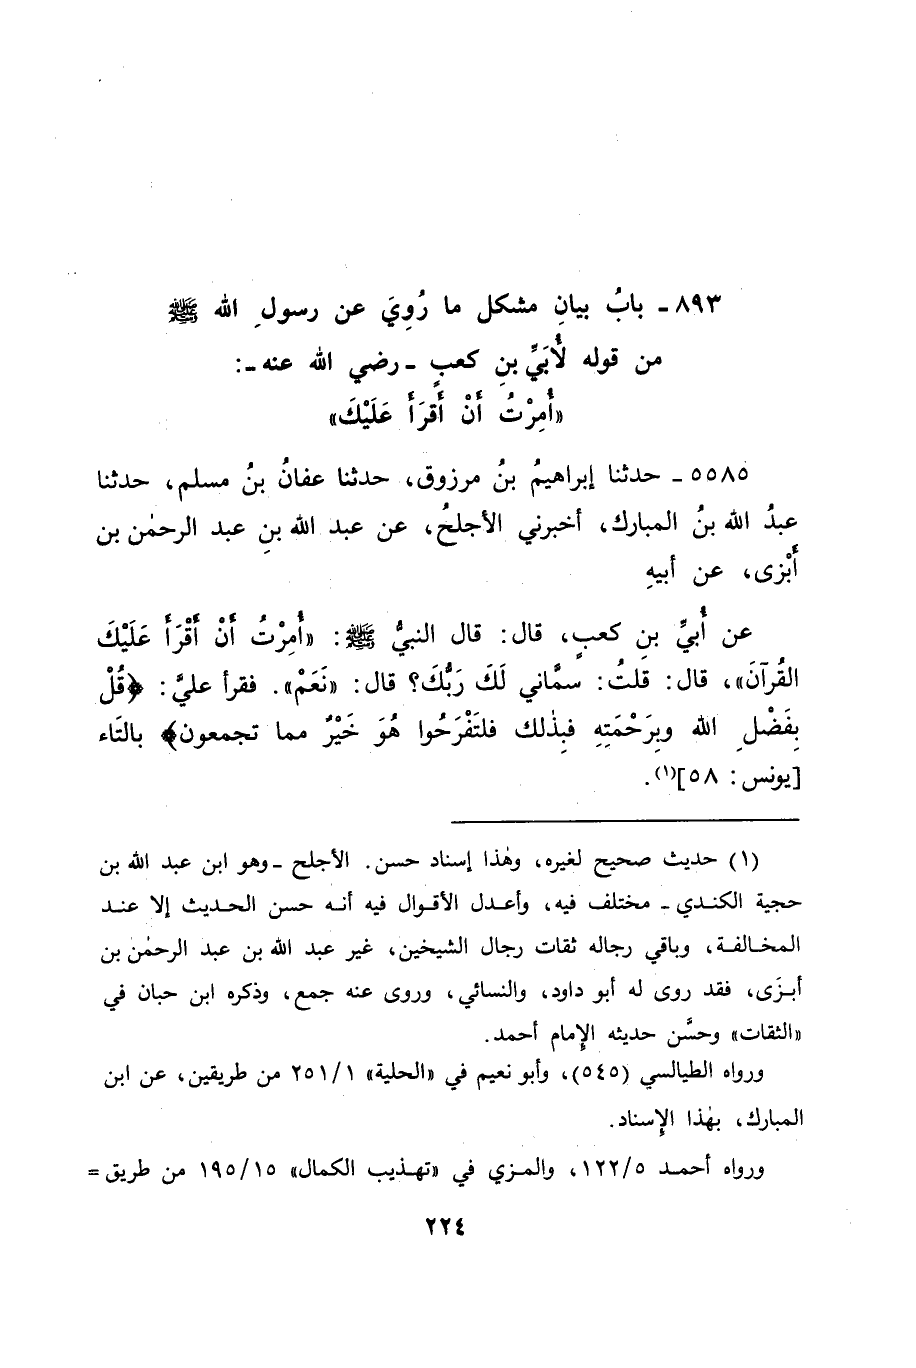 ٨٩٣ ـ بابُ بيانِ مشكل ما رُوِيَ عن رسولِ الله ﷺ
من قوله لُأبَيِّ بنِ كعبٍ ـ رضي الله عنه ـ:
«أُمِرْتُ أَنْ أَقرَأَ عَلَيْكَ»
٥٥٨٥ ـ حدثنا إبراهيمُ بنُ مرزوق، حدثنا عفانُ بنُ مسلم، حدثنا
عبدُ الله بنُ المبارك، أخبرني الأجلحُ، عن عبد الله بنِ عبد الرحمٰن بن
أَبْزى، عن أبيهِ
عن أُبيِّ بنِ كعبٍ، قال: قال النبيُّ ﷺ: «أُمِرْتُ أَنْ أَقْرَأَ عَلَيْكَ
القُرآنَ»، قال: قلتُ: سمَّاني لَكَ رَبُّكَ؟ قال: «نَعَمْ». فقرأ عليَّ: ﴿قُلْ
بِفَضْلِ الله وبِرَحْمَتِهِ فبِذٰلك فلتَفْرَحُوا هُوَ خَيْرٌ مما تجمعون﴾ بالتَاء
[يونس: ٥٨](١).
(١) حديث صحيح لغيره، وهٰذا إسناد حسن. الأجلح ـ وهو ابن عبد الله بن
حجية الكندي ـ مختلف فيه، وأعدل الأقوال فيه أنه حسن الحديث إلا عند
المخالفة، وباقي رجاله ثقات رجال الشيخين، غير عبد الله بن عبد الرحمٰن بن
أبزَى، فقد روى له أبو داود، والنسائي، وروى عنه جمع، وذكره ابن حبان في
«الثقات» وحسَّن حديثه الإمام أحمد.
ورواه الطيالسي (٥٤٥)، وأبو نعيم في «الحلية» ٢٥١/١ من طريقين، عن ابن
المبارك، بهٰذا الإسناد.
ورواه أحمد ١٢٢/٥، والمزي في «تهذيب الكمال» ١٩٥/١٥ من طريق =
٢٢٤